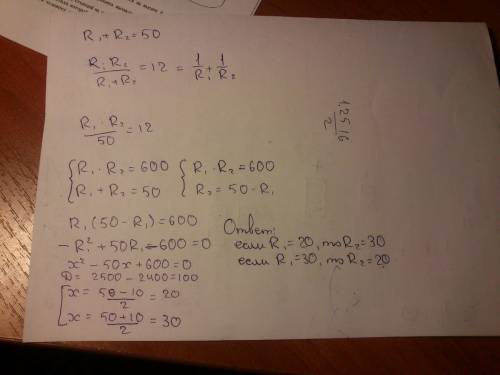 R₁ + R₂ = 50
R₁ R₂ / R₁ + R₂ = 12 = 1/R₁ + 1/R₂
R₁ · R₂ / 50 = 12
{ R₁ · R₂ = 600 { R₁ · R₂ = 600
{ R₁ + R₂ = 50 { R₂ = 50 - R₁
R₁ (50 - R₁) = 600
- R² + 50R₁ - 600 = 0
x² - 50x + 600 = 0
D = 2500 - 2400 = 100
[ x = 50 - 10 / 2 = 20
[ x = 50 + 10 / 2 = 30
Ответ:
если R₁ = 20, то R₂ = 30
если R₁ = 30, то R₂ = 20